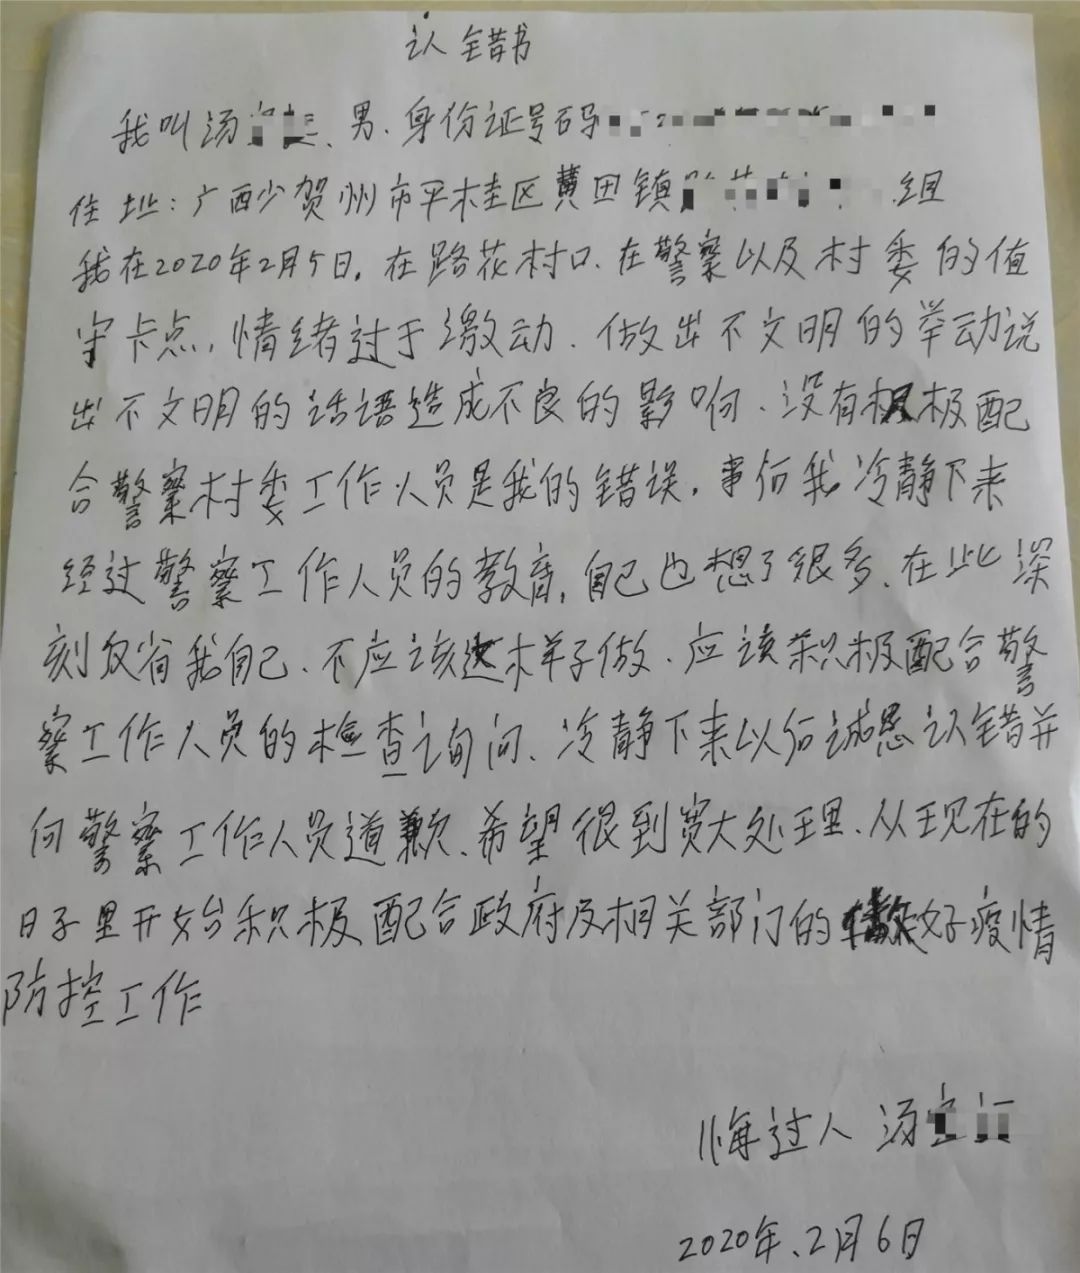 认错书
我叫汤 男、身份证号码
住址：广西少贺州市平桂区黄田镇 组
我在2020年2月5日，在路花村口、在警察以及村委的值
守卡点，情绪过于激动、做出不文明的举动说
出不文明的话语造成不良的影响、没有积极配
合警察村委工作人员是我的错误，事后我冷静下来
经过警察工作人员的教育，自己也想了很多、在此深
刻反省我自己、不应该这样子做、应该积极配合警
察工作人员的检查询问、冷静下来以后诚恳认错并
向警察工作人员道歉、希望很到宽大处理、从现在的
日子里开始积极配合政府及相关部门的 好疫情
防控工作
悔过人 汤
2020年、2月6日